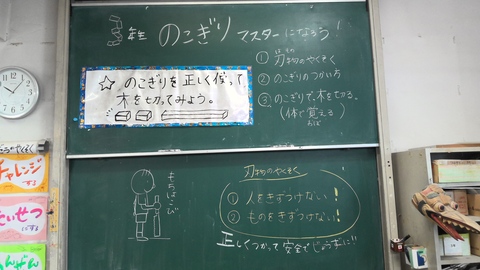 のこぎりマスターになろう!
① 刃物のやくそく
はもの
② のこぎりのつかい方
③ のこぎりで、木を切る。
(体で覚える)
おぼ
☆ のこぎりを正しく使って
木を切ってみよう。
もちはこび
刃物のやくそく
① 人をきずつけない!
② ものをきずつけない!
正しくつかって安全で
チャレンジ
する
たいせつ
にする
あんぜん